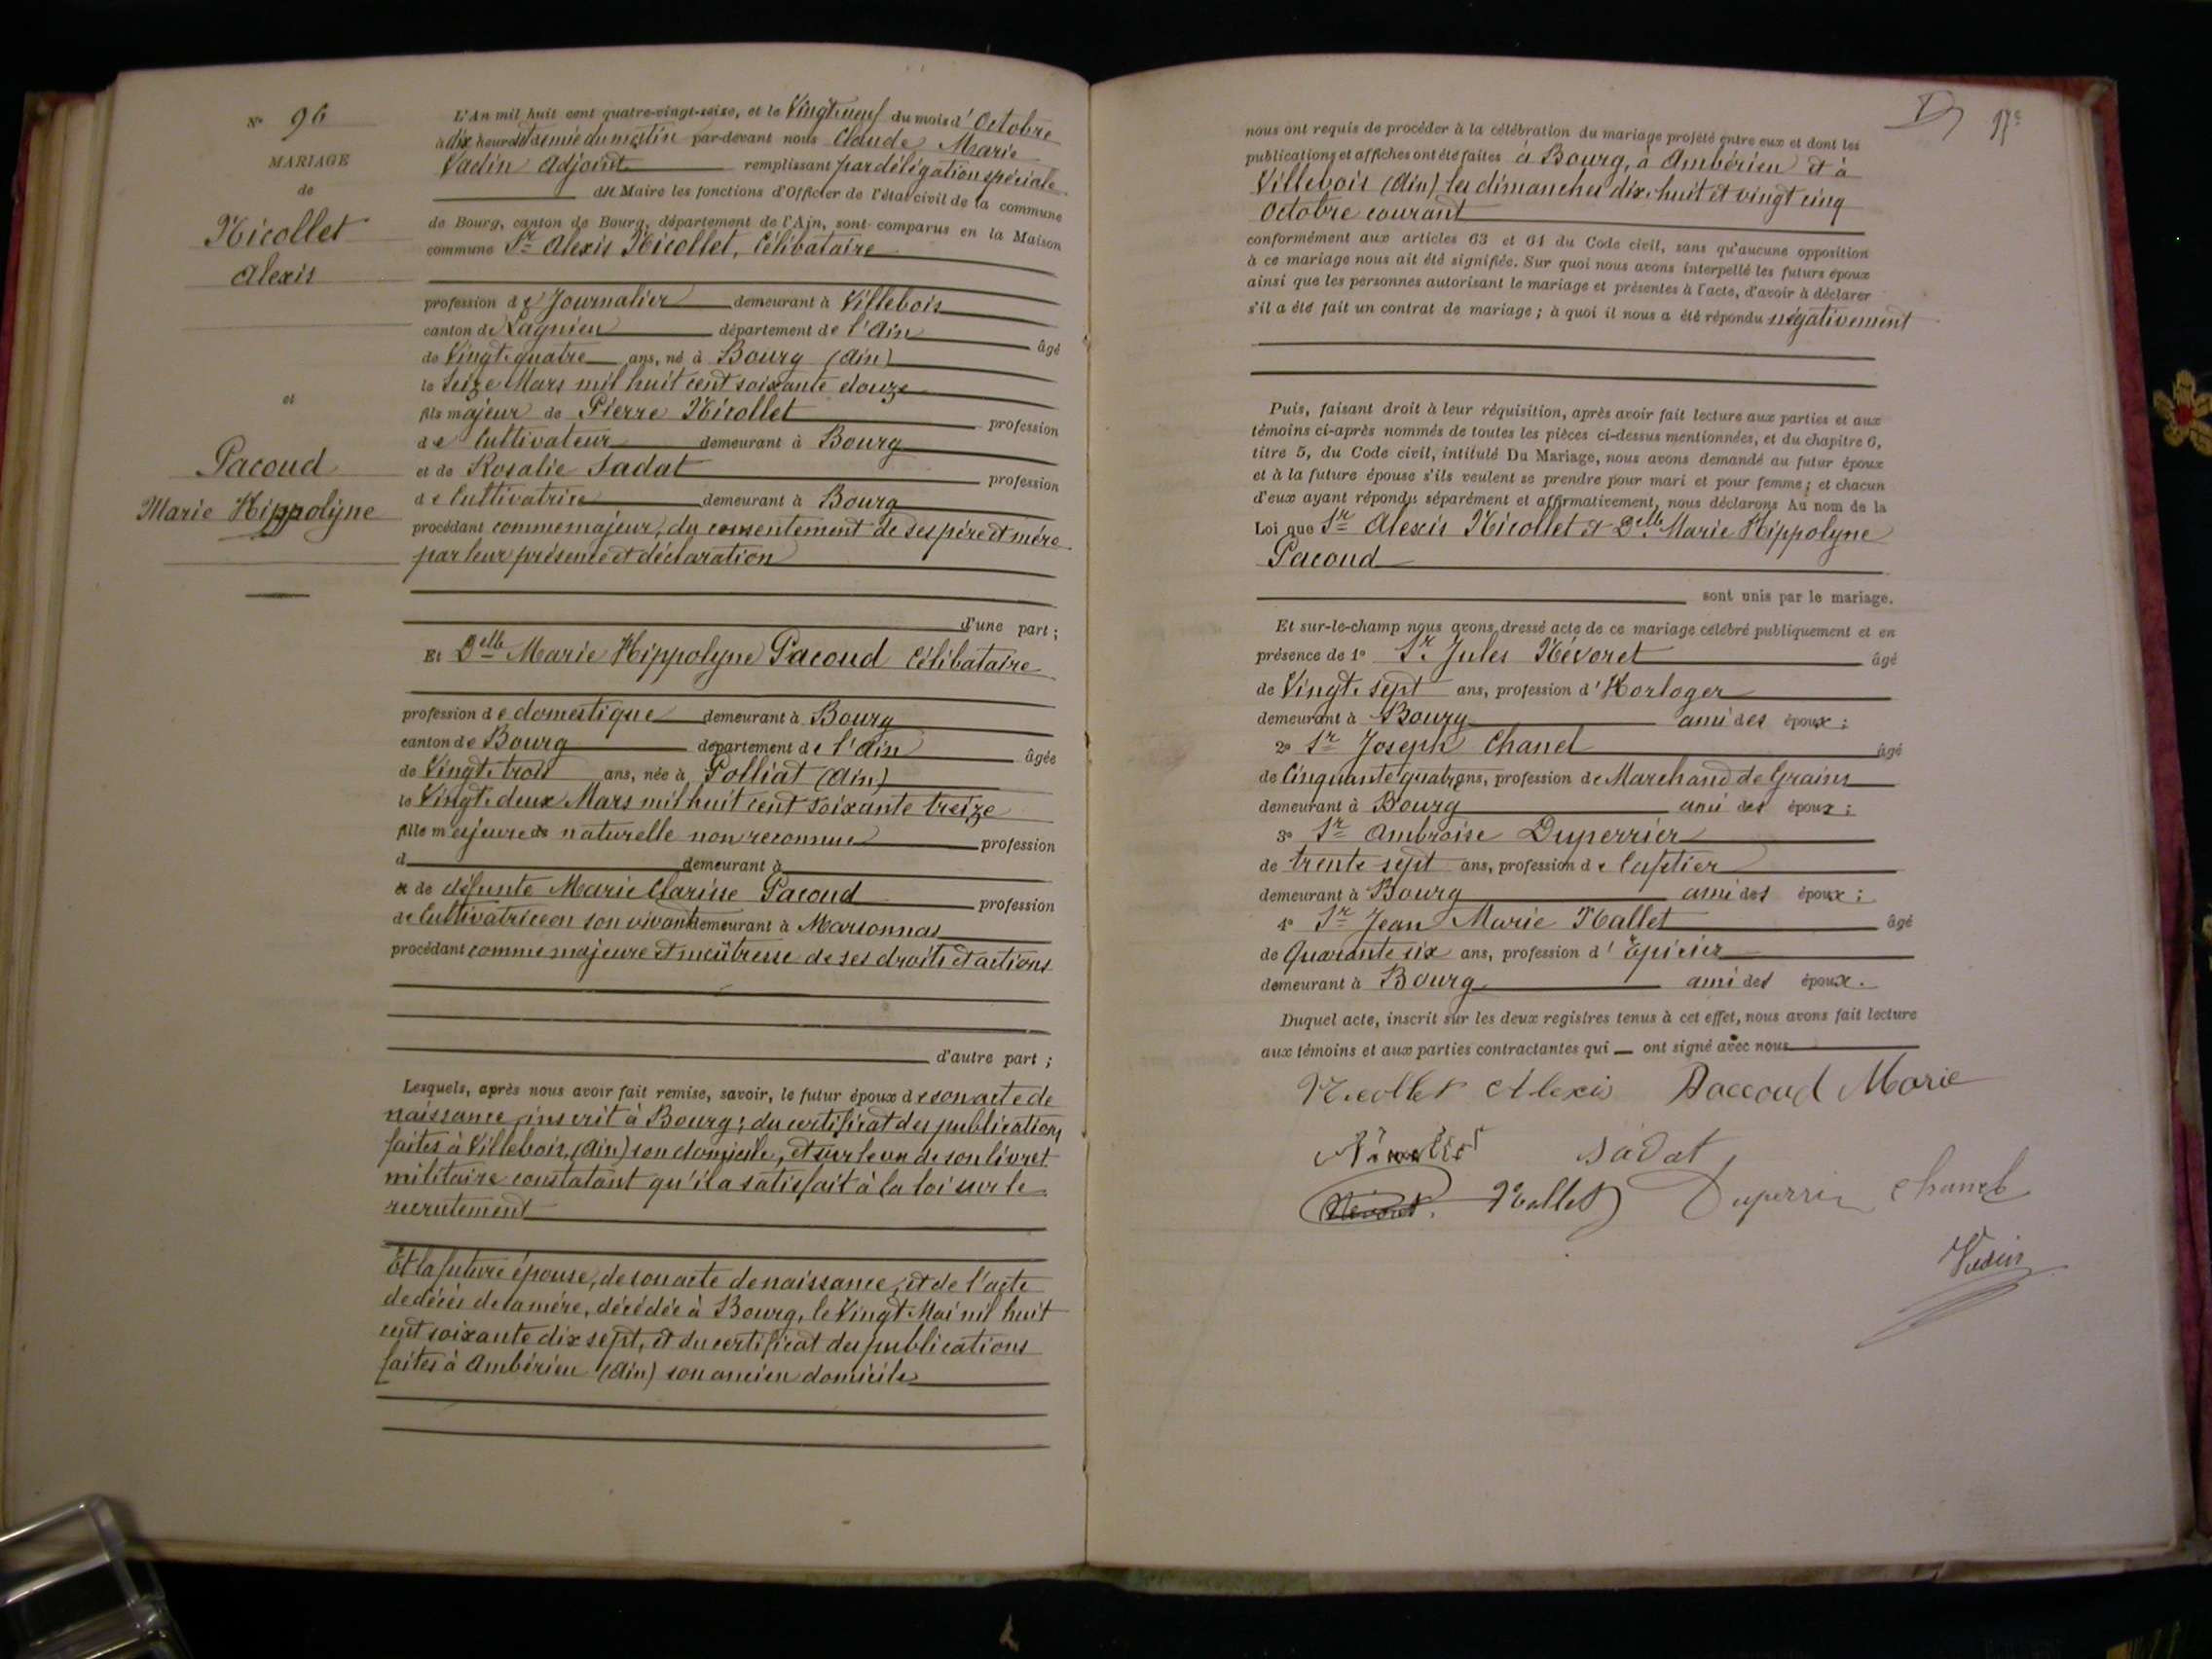 N° 96
MARIAGE
de
Nicollet
Alexis
et
Pacoud
Marie Hippolyne
L'An mil huit cent quatre-vingt-seize, et le Vingt neuf du mois d'Octobre
à dix heures et demie du matin par-devant nous Claude Marie
Vadin Adjoint remplissant par délégation spéciale
du Maire les fonctions d'Officier de l'état civil de la commune
de Bourg, canton de Bourg, département de l'Ain, sont comparus en la Maison
commune Sr Alexis Nicollet, Célibataire
profession de Journalier demeurant à Villebois
canton de Lagnieu département de l'Ain âgé
de Vingt quatre ans, né à Bourg (Ain)
le Seize Mars mil huit cent soixante douze
fils majeur de Pierre Nicollet profession
de Cultivateur demeurant à Bourg
et de Rosalie Sadat profession
de Cultivatrice demeurant à Bourg
procédant comme majeur, du consentement de ses père et mère
par leur présence et déclaration
d'une part ;
Et Delle Marie Hippolyne Pacoud Célibataire
profession de domestique demeurant à Bourg
canton de Bourg département de l'Ain âgée
de Vingt trois ans, née à Polliat (Ain)
le Vingt deux Mars mil huit cent soixante treize
fille majeure de naturelle non reconnue profession
d demeurant à
et de défunte Marie Clarisse Pacoud profession
de Cultivatrice en son vivant demeurant à Marsonnas
procédant comme majeure et maîtresse de ses droits et actions
d'autre part ;
Lesquels, après nous avoir fait remise, savoir, le futur époux de son acte de
naissance, inscrit à Bourg ; du certificat des publications
faites à Villebois, (Ain) son domicile, et sur le vu de son livret
militaire constatant qu'il a satisfait à la loi sur le
recrutement
Et la future épouse, de son acte de naissance, et de l'acte
de décès de sa mère, décédée à Bourg, le Vingt Mai mil huit
cent soixante dix sept, et du certificat des publications
faites à Ambérieu (Ain) son ancien domicile
97e
nous ont requis de procéder à la célébration du mariage projeté entre eux et dont les
publications et affiches ont été faites à Bourg, à Ambérieu et à
Villebois (Ain) les dimanches dix-huit et vingt cinq
Octobre courant
conformément aux articles 63 et 64 du Code civil, sans qu'aucune opposition
à ce mariage nous ait été signifiée. Sur quoi nous avons interpellé les futurs époux
ainsi que les personnes autorisant le mariage et présentes à l'acte, d'avoir à déclarer
s'il a été fait un contrat de mariage ; à quoi il nous a été répondu négativement
Puis, faisant droit à leur réquisition, après avoir fait lecture aux parties et aux
témoins ci-après nommés de toutes les pièces ci-dessus mentionnées, et du chapitre 6,
titre 5, du Code civil, intitulé Du Mariage, nous avons demandé au futur époux
et à la future épouse s'ils veulent se prendre pour mari et pour femme ; et chacun
d'eux ayant répondu séparément et affirmativement, nous déclarons Au nom de la
Loi que Sr Alexis Nicollet et Delle Marie Hippolyne
Pacoud
sont unis par le mariage.
Et sur-le-champ nous avons dressé acte de ce mariage célébré publiquement et en
présence de 1° Sr Jules Névoret âgé
de Vingt sept ans, profession d'Horloger
demeurant à Bourg ami des époux ;
2° Sr Joseph Chanel âgé
de Cinquante quatre ans, profession de Marchand de Grains
demeurant à Bourg ami des époux ;
3° Sr Ambroise Duperrier
de trente sept ans, profession de Cafetier
demeurant à Bourg ami des époux ;
4° Sr Jean Marie Nallet âgé
de Quarante six ans, profession d'Epicier
demeurant à Bourg ami des époux.
Duquel acte, inscrit sur les deux registres tenus à cet effet, nous avons fait lecture
aux témoins et aux parties contractantes qui ont signé avec nous
Nicollet Alexis Paccoud Marie
Nicollet Sadat
Névoret Nallet Duperrier Chanel
Vadin